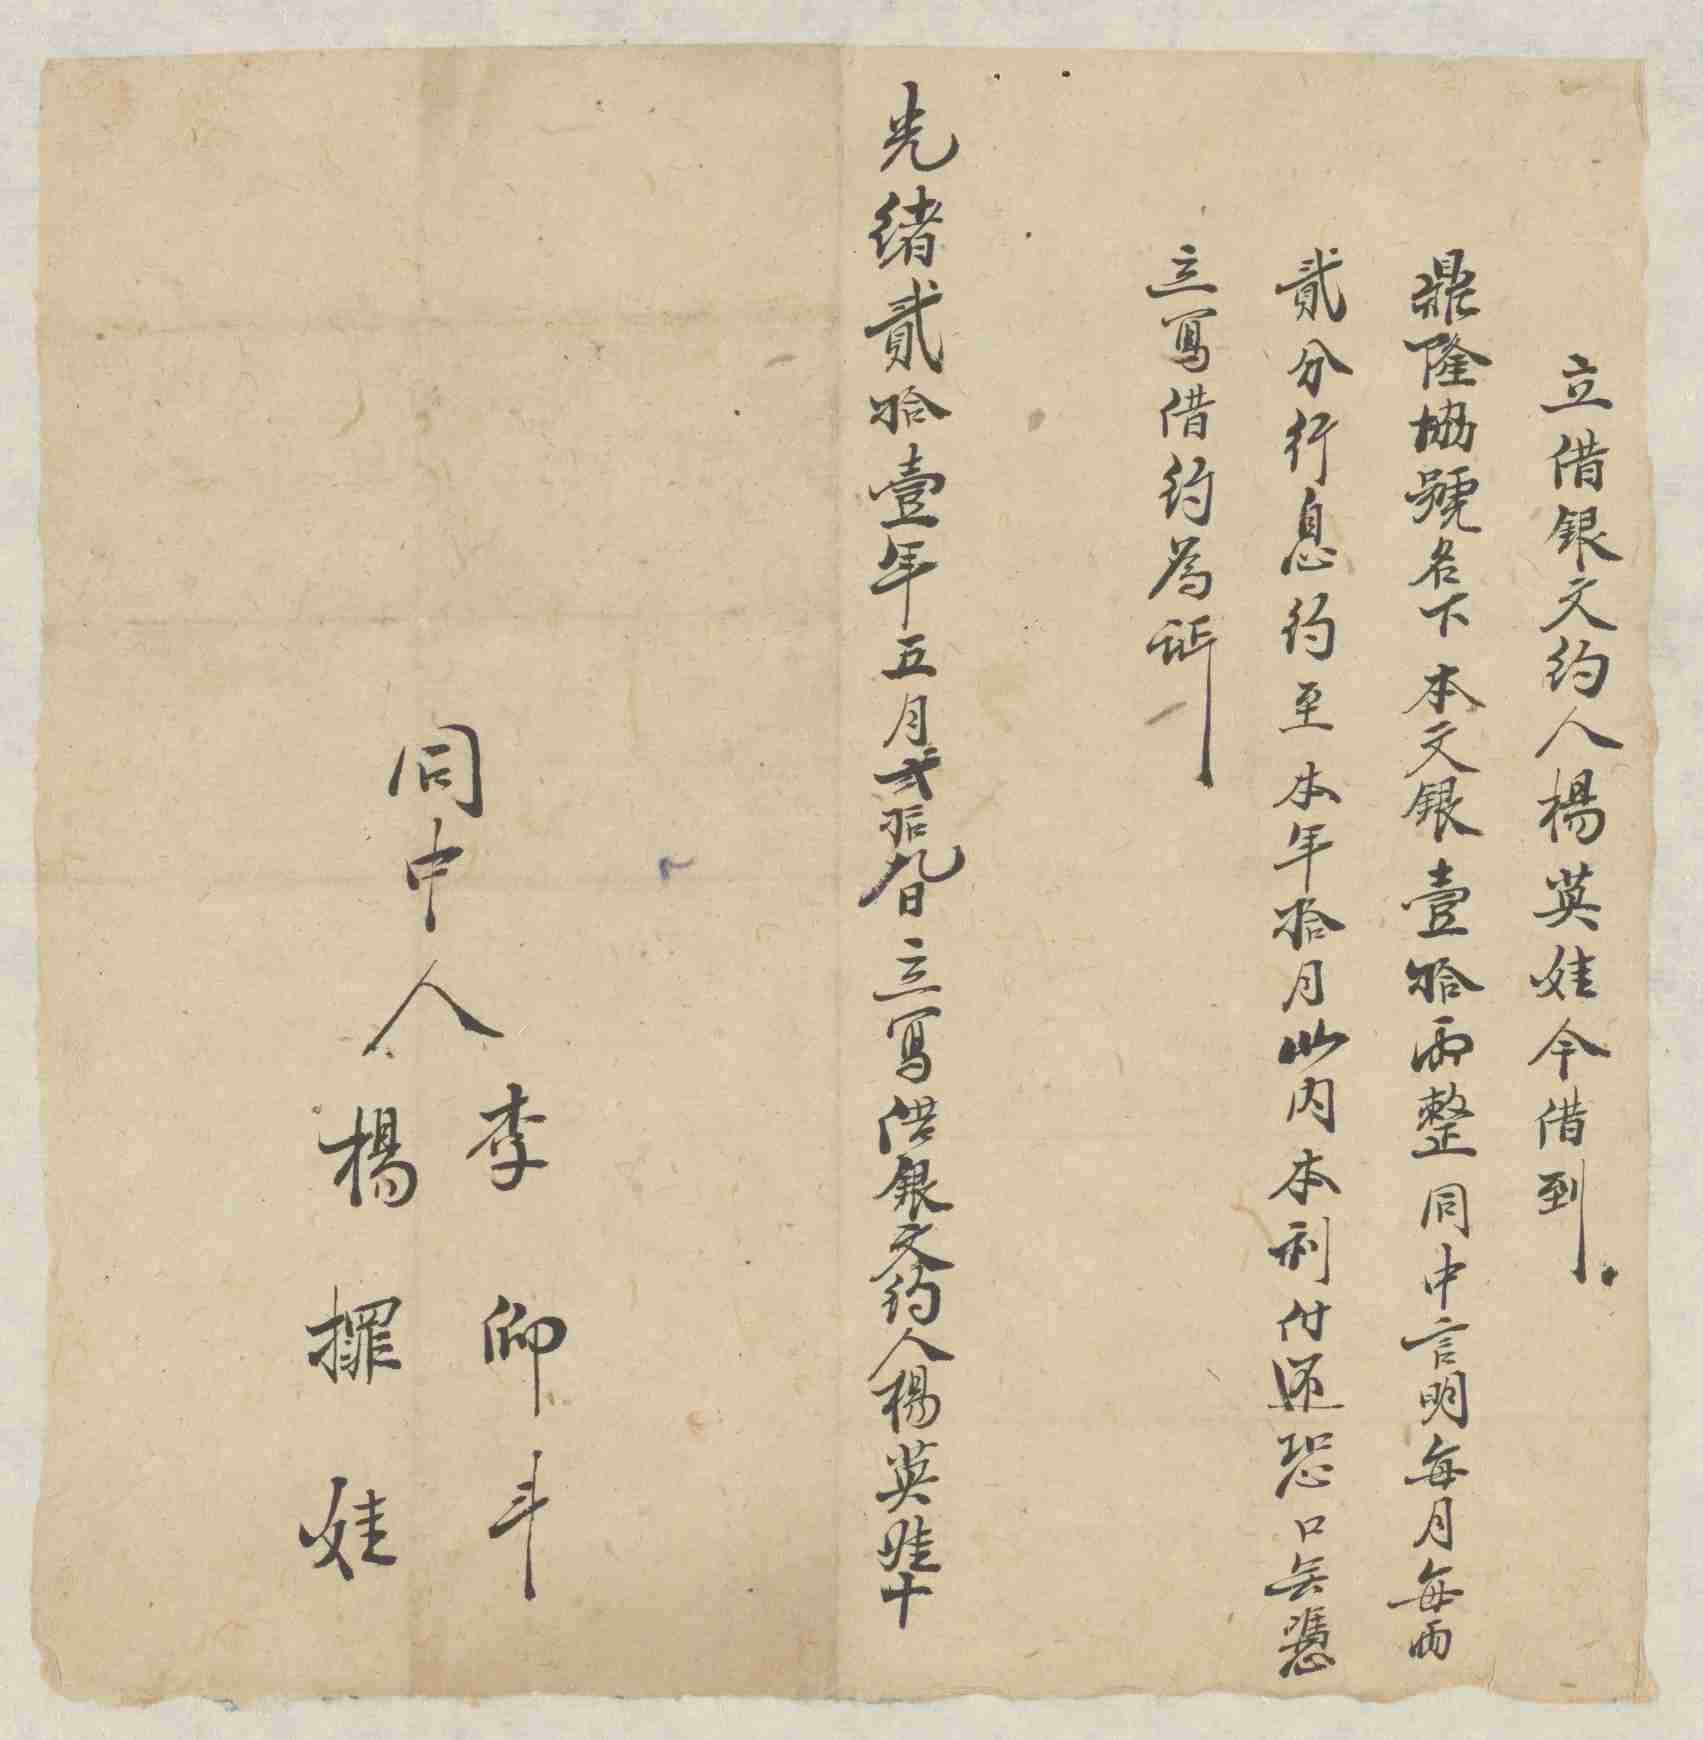 立借銀文約人楊英娃今借到
鼎隆協號名下本文銀壹拾兩整同中言明每月每兩
貳分行息約至本年拾月以内本利付還恐口無憑
立寫借約為証
光緒貳拾壹年五月貳拾九日立寫借銀文約人楊英娃十
同中人
李仰斗
楊娃